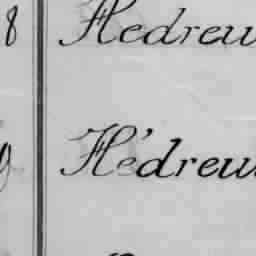 8 Hedreu
Hédreu